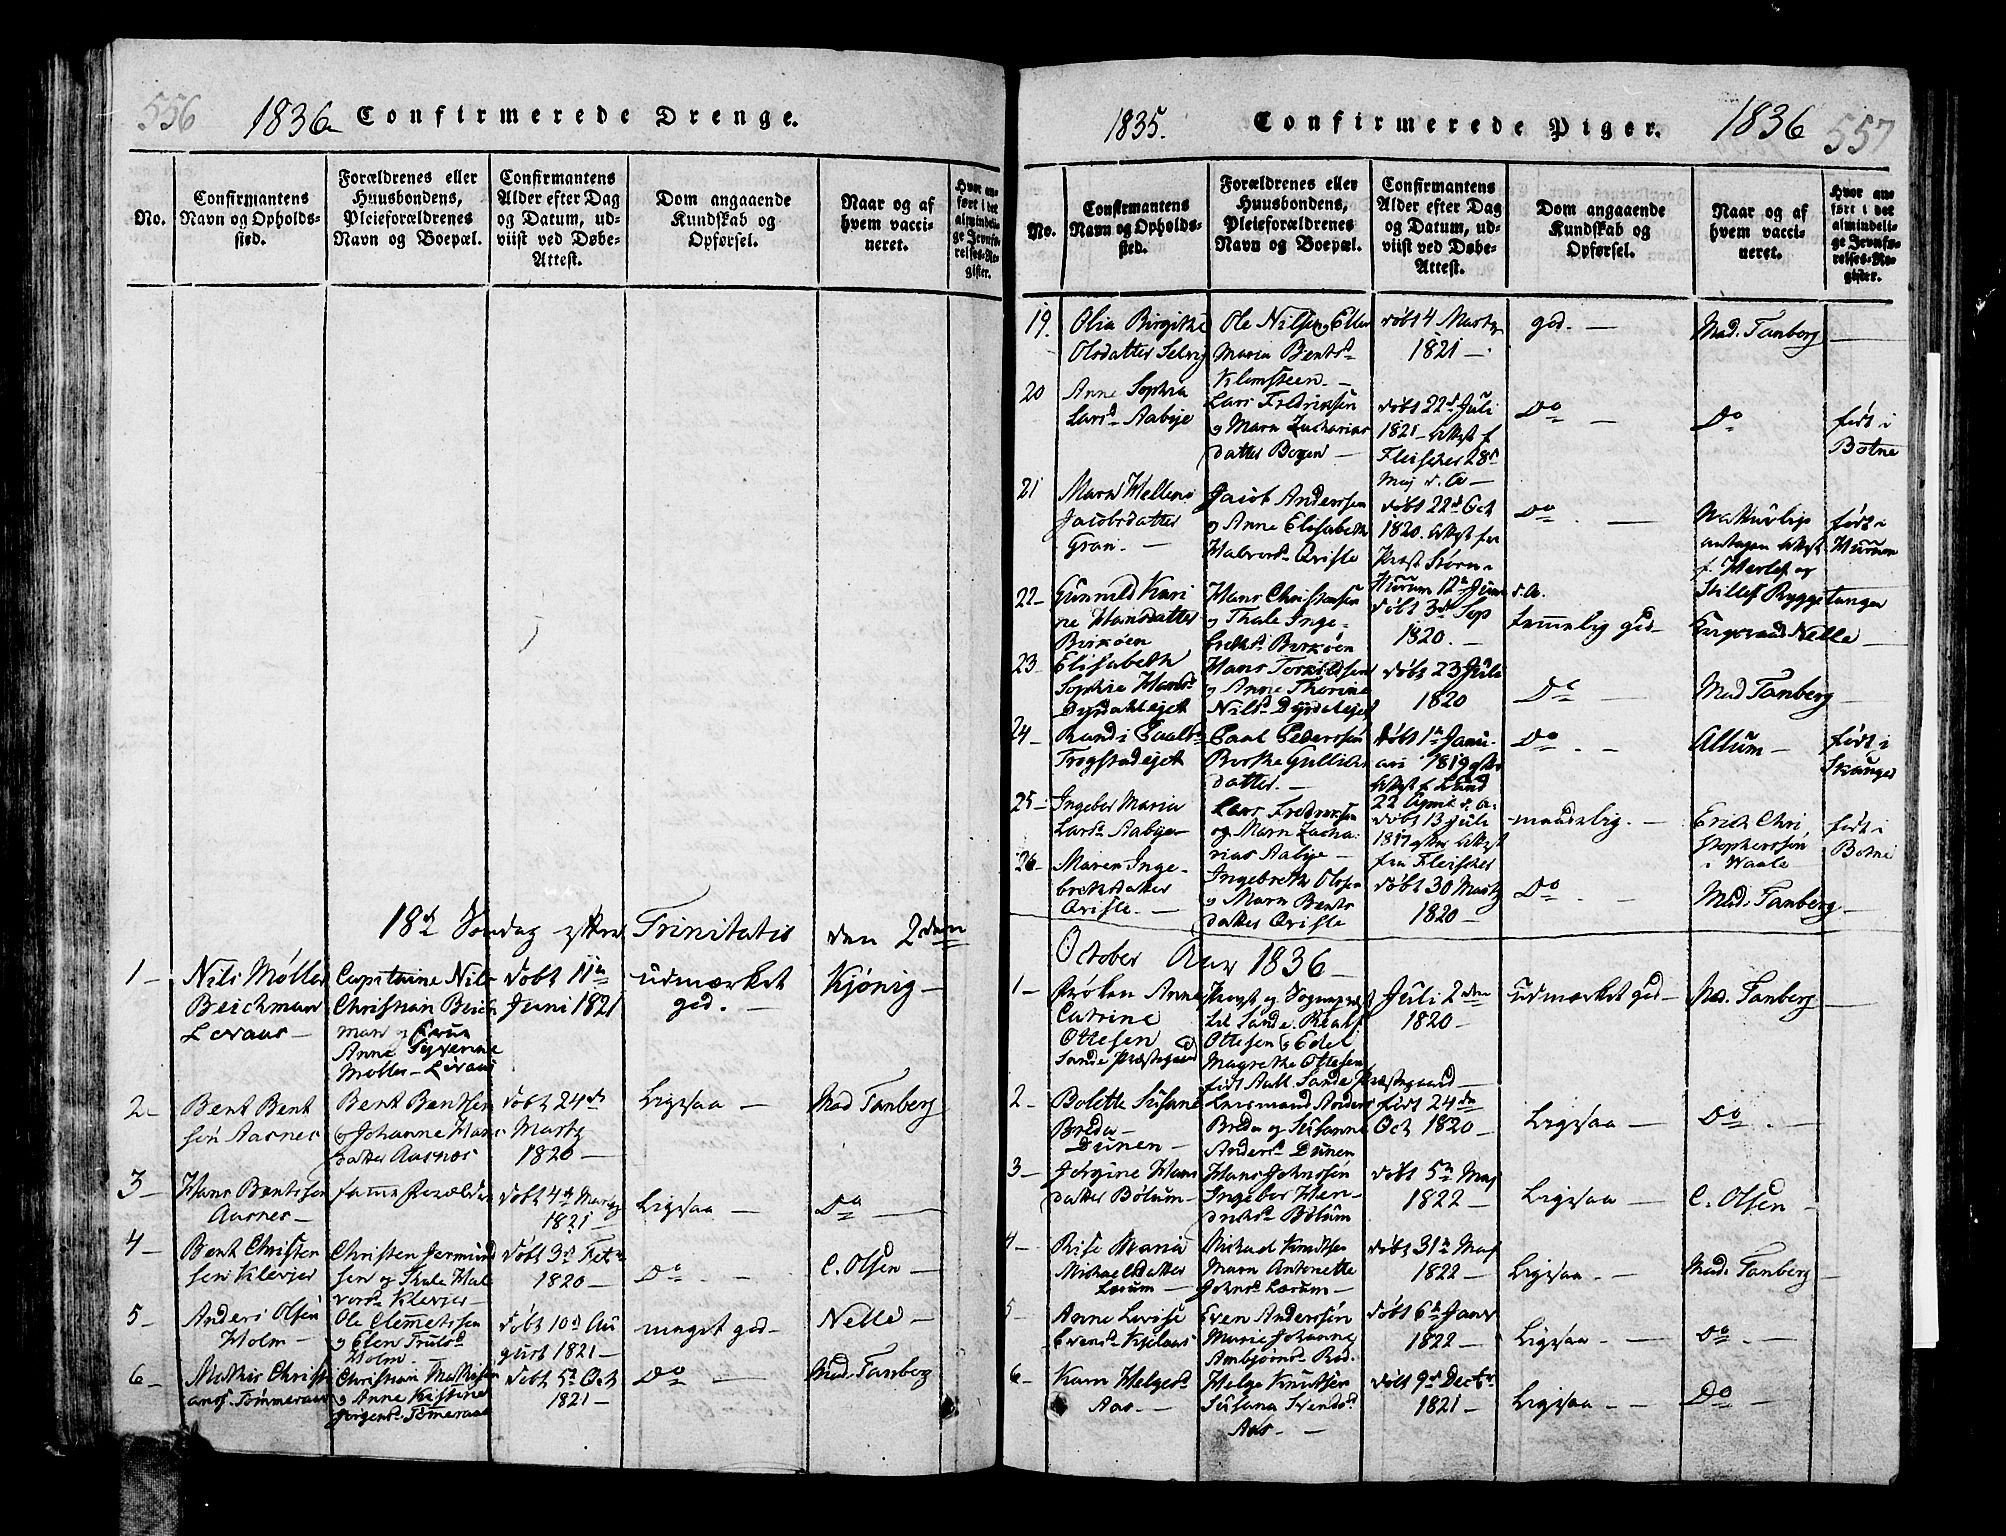 556 1836 Confirmerede Drenge.
No.
Confirmantens Navn og Opholds-sted.
Forældrenes eller Huusbondens, Pleieforældrenes Navn og Boepæl.
Confirmantens Alder efter Dag og Datum, ud-viist ved Døbe-Attest.
Dom angaaende Kundskab og Opførsel.
Naar og af hvem vacci-neret.
Hvor an-ført i det almindeli-ge Jevnfø-relses-Re-gister.
18de Søndag efter Trinitatis den 2den
1 Nils Møller
Beichman
Capitaine Nils
Christian Beich
man og
Anne Severine
Møller
døbt 11te
Juni 1821
udmærket
god.
Kjønig
2 Bent Bent
sen Aasnes
Bent Bentsen
og Johanne Hans
datter Aasnes
døbt 24de
Martz
1820
Ligesaa
Mad Tanberg
3 Hans Bentsen
Aasnes
samme Forældre
døbt 4de Martz
1821
Ligesaa
Do
4 Bent Christen
sen Klevjer
Christen Germund
sen og Thale Hal
vorsd. Klevjer
døbt 3de Febr
1820
Do
C. Olsen
5 Anders Olsen
Holm
Ole Clemetsen
og Elen Trulsd
Holm
døbt 10de Au
gust 1821
meget god
Nelle
6 Mathis Christi
ans. Tømmeraas
Christian Mathisen
og Anne Kistine
Jørgensd. Tømeraas
døbt 5te Oct
1821
Do
Mad. Tanberg
1835. Confirmerede Piger. 1836 557
No.
Confirmantens Navn og Opholds-sted.
Forældrenes eller Huusbondens, Pleieforældrenes Navn og Boepæl.
Confirmantens Alder efter Dag og Datum, ud-viist ved Døbe-Attest.
Dom angaaende Kundskab og Opførsel.
Naar og af hvem vacci-neret.
Hvor an-ført i det almindeli-ge Jevnfø-relses-Re-gister.
19. Olia Birgitte
Olsdatter Selvig
Ole Nilsen og Ellen
Maria Bentsd
Klemsteen
døbt 4 Martz
1821
god.
Mad. Tanberg
20 Anne Sophia
Larsd. Aabye
Lars Fredriksen
og Maren Zacharias
datter Bogen
døbt 22de Juli
1821 Attest f
Fleischer 28de
Maj d. A
Do
Do
født i
Botne
21 Maren Hellene
Jacobsdatter
Gran
Jacob Anderssen
og Anne Elisabeth
Halvorsd. Qrisle
døbt 22de Oct
1820. Attest fra
Præst Støren i
Hurum 12te Juni d. A.
Do
Naturlige
antagen Attest
f. Herlof og
født i
Hurum
22 Gunnild Kari
ne Hansdatter
Birkøen
Hans Christensen
og Thale Inge
Birkøen
døbt 3de Sep
1820.
temmelig god
Nelle
23 Elisabeth
Sophie Hansd
Dyrdalsejet
Hans Torkildsen
og Anne Thorine
Nilsd Dyrdalsejet
døbt 23 Juli
1820
Do
Mad Tanberg
24 Randi Paalsd
Trogstadejet
Paal Pederssen
Berthe Gulliks
datter.
døbt 1te Janu
ari 1819 efter
Attest f. Lund
22 April d. A.
Do
Allum
født i
Skauger
25 Ingebor Maria
Larsd Aabye
Lars Fredriksen
og Maren Zacha
rias Aabye
døbt 13 Juli
1817 efter Attest
fra Fleischer
maadelig.
Erich Chri
stopherssen
i Waale
født i
Botne
26 Maren Inge
brethsdatter
Qrisle
Ingebreth Olsen
og Maren Bents
datter Qrisle
døbt 30 Martz
1820
Do
Mad. Tanberg
October Aar 1836
1 Frøken Anne
Catrine
Ottesen
Sande Præstegaard
Provst og Sognepræst
til Sande. Realf
Ottesen og Edel
Magrethe Ottesen
født Aall. Sande Præstegaard
Juli 2den
1820
Udmærket god
Mad. Tanberg
2 Bolette Susane
Breda
Dunen
Anders
Breda og Susanne
Andersd. Dunen
født 24de
Oct 1820
Ligesaa
Do
3 Jørgine Hans
datter Bølum
Hans Johnssen
Ingebor Hen
driksd Bølum
døbt 5te Maj
1822
Ligesaa
C. Olsen
4 Rise Maria
Michaelsdatter
Lærum
Michael Knudtsen
Maren Antonette
Johnsd. Lærum
døbt 31te Maj
1822
Ligesaa
Mad. Tanberg
5 Anne Lovise
Evensd. Kjelaas
Even Anderssen
Marie Johanne
Ambjørnsd. Rød.
døbt 6te Janr
1822
Ligesaa
Do
6 Karn Helgesd
Aas
Helge Knutsen
Susana Svendsd
Aas
døbt 9de Decbr
1821
Ligesaa
Do